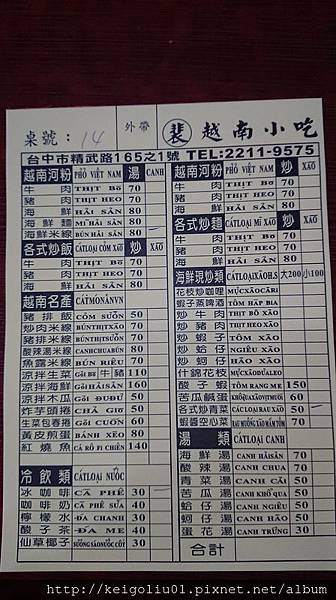 桌號：14 外帶 裴 越南小吃
台中市精武路165之1號 TEL:2211-9575
越南河粉 PHỞ VIỆT NAM 湯 CANH
牛肉 THỊT BÒ 70
豬肉 THỊT HEO 70
海鮮 HẢI SẢN 80
海鮮麵 MÌ HẢI SẢN 80
海鮮米線 BÚN HẢI SẢN 80
各式炒飯 CÁTLOẠI CƠM XÀO 炒 XÀO
牛肉 THỊT BÒ 70
豬肉 THỊT HEO 70
海鮮 HẢI SẢN 80
越南名產 CÁTMÓNĂNVN
豬排飯 CƠM SUỜN 50
炒肉米線 BÚNTHỊTXÀO 70
豬排米線 BÚNTHỊTXÀO 70
酸辣湯米線 CANHCHUABÚN 80
魚露米線 BÚN RIÊU 70
涼拌生菜 GỎI BÊ 牛豬 110
涼拌海鮮 GỎI HẢISẢN 160
涼拌木瓜 GỎI ĐUĐỦ 50
炸芋頭捲 CHẢ GIÒ 50
生菜包春捲 GỎI CUỐN 60
黃皮煎蛋 BÁNH XÈO 80
紅燒魚 CÁ RÔ PI CHIÊN 140
冷飲類 CÁTLOẠI NUỚC
冰咖啡 CÀ PHÊ 30
咖啡奶 CÀ PHÊ SỮA 40
檸檬水 ĐA CHANH 30
酸子茶 ĐA ME 30
仙草椰子 SUONG SÁO NUỚC CỐT 30
越南河粉 PHỞ VIỆT NAM 炒 XÀO
牛肉 THỊT BÒ 70
豬肉 THỊT HEO 70
海鮮 HẢI SẢN 80
各式炒麵 CÁTLOẠI MÌ XÀO 炒 XÀO
牛肉 THỊT BÒ 70
豬肉 THỊT HEO 70
海鮮 HẢI SẢN 80
海鮮現炒類 CÁTLOẠIXÀOH.S 大200 小100
花枝炒咖哩 MỰCXÀOCÀRI
蝦子蒸啤酒 TÔM HẤP BIA
炒牛肉 THỊT BÒ XÀO
炒豬肉 THỊT HEO XÀO
炒蝦子 TÔM XÀO
炒蛤仔 NGHÊU XÀO
炒蚵仔 HÀO XÀO
什錦花枝 MỰCXÀODƯALEO
酸子蝦 TÔM RANG ME 150
苦瓜鹹蛋 60
各式炒青菜 CÁTLOẠI RAU XÀO 50
蝦醬空心菜 50
湯類 CÁTLOẠI CANH
海鮮湯 CANH HẢISẢN 70
酸辣湯 CANH CHUA 70
青菜湯 CANH CẢI 50
苦瓜湯 CANH KHỔ QUA 50
蛤仔湯 CANH NGHÊU 50
蚵仔湯 CANH HÀO 50
蛋花湯 CANH TRỨNG 30
合計
http://keigoliu01.pixnet.net/album